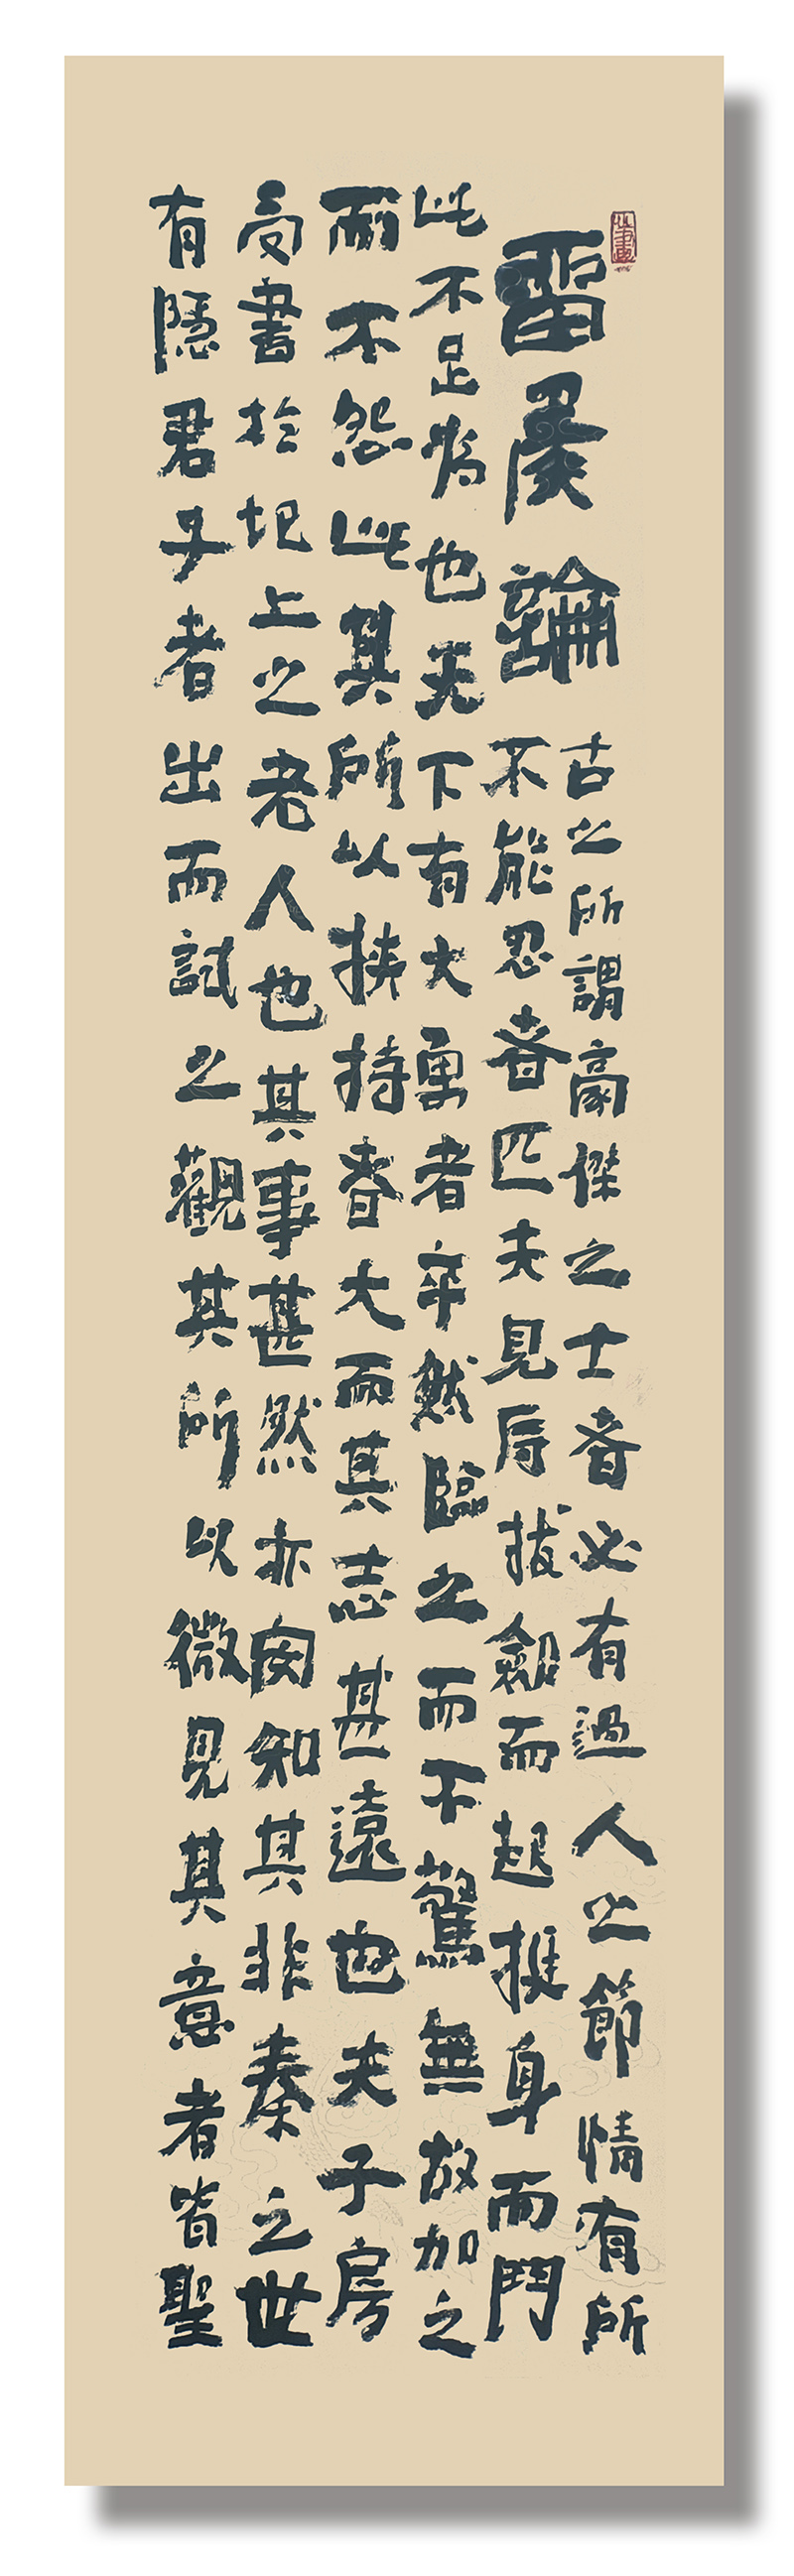 留矦論
古之所謂豪傑之士者必有過人之節情有所
不能忍者匹夫見辱拔劍而起挺身而鬥
此不足為也天下有大勇者卒然臨之而不驚無故加之
而不怒此其所以挾持者大而其志甚遠也夫子房
受書於圯上之老人也其事甚然亦安知其非秦之世
有隱君子者出而試之觀其所以微見其意者皆聖